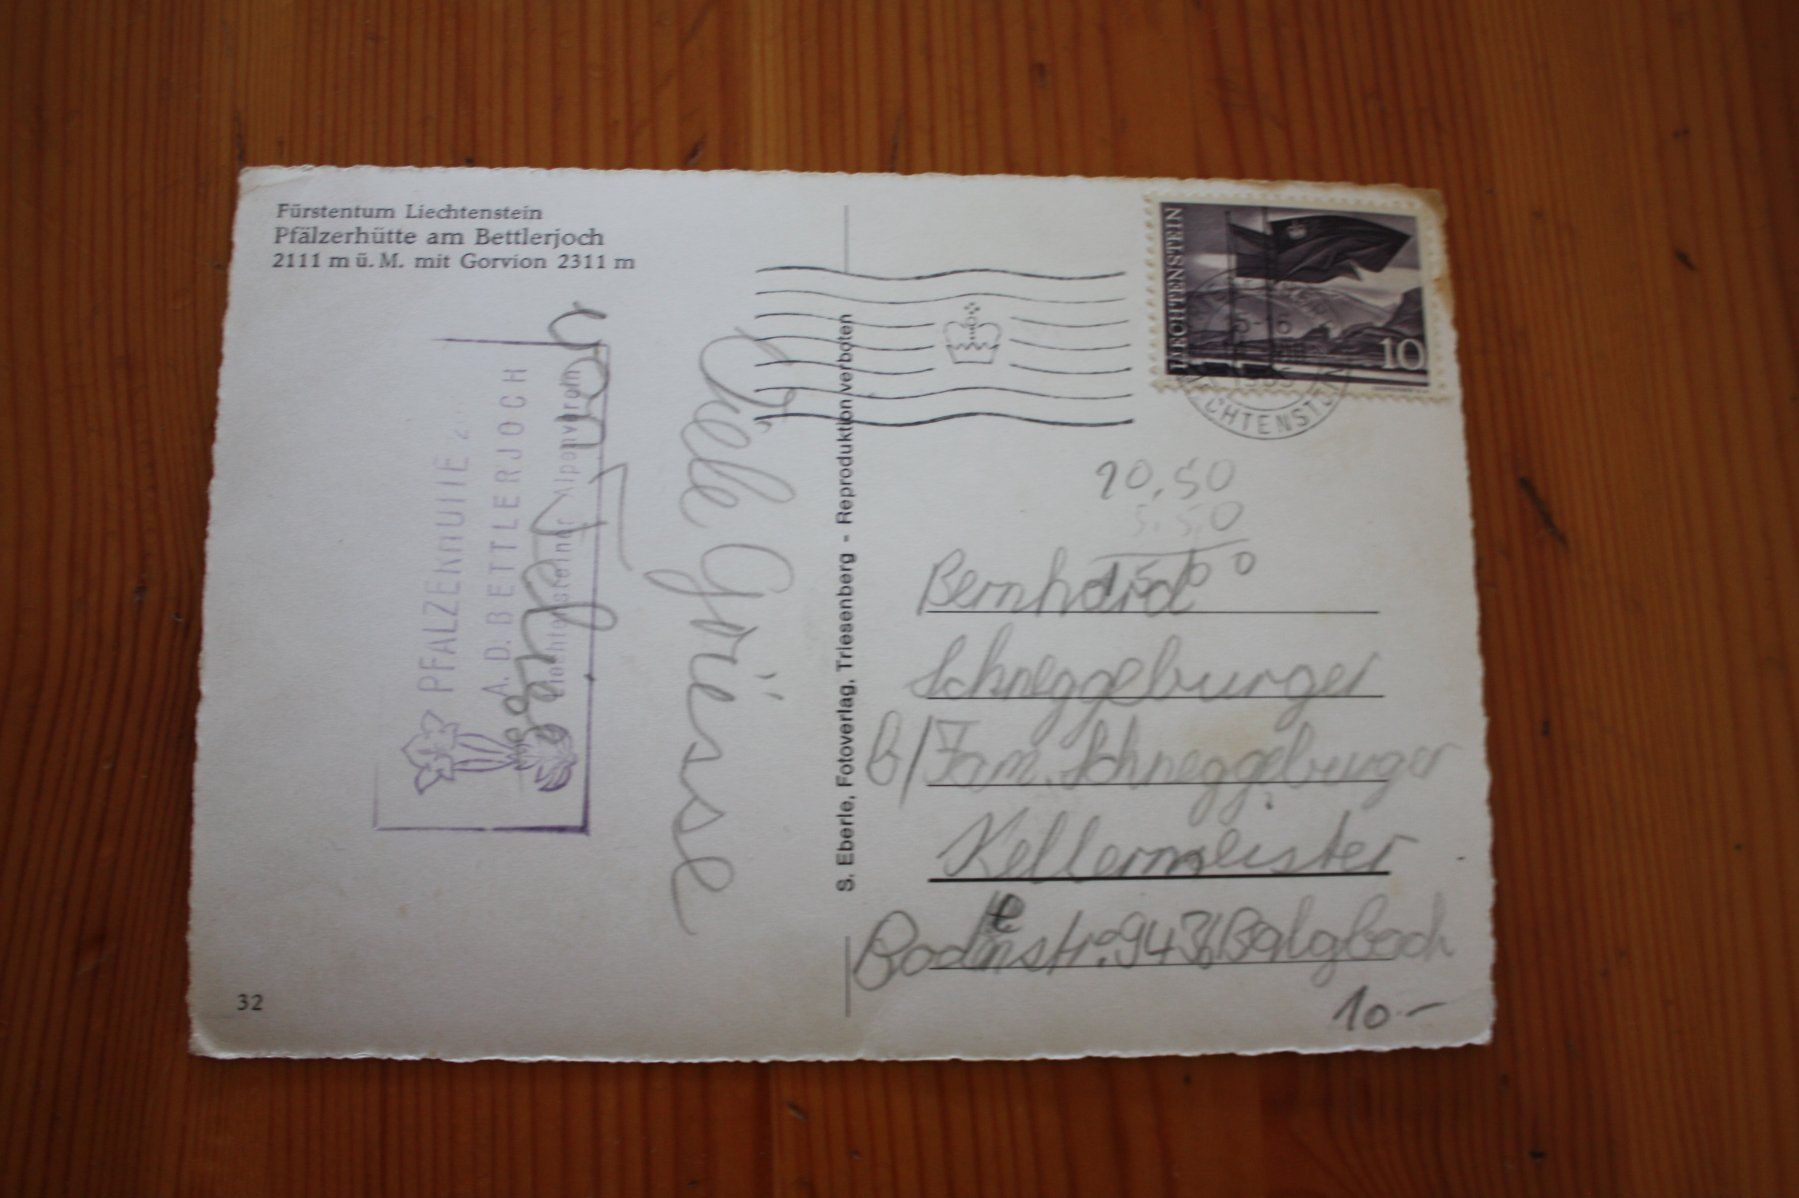 Fürstentum Liechtenstein
Pfälzerhütte am Bettlerjoch
2111 m ü. M. mit Gorvion 2311 m
LIECHTENSTEIN
10
LIECHTENSTEIN
PFÄLZERHÜTTE
A. D. BETTLERJOCH
Liechtensteiner Alpenverein
Viele Grüsse
von
S. Eberle, Fotoverlag, Triesenberg - Reproduktion verboten
20,50
5,50
15,00
Bernhard
Schneggeburger
b/Fam. Schneggeburger
Kellermeister
9436 Balgach
10.-
32